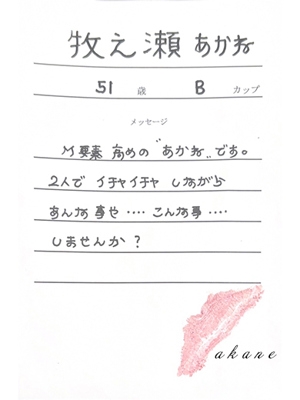 牧之瀬 あかね
51 歳 B カップ
メッセージ
M要素 高めの "あかね" です。
2人で イチャイチャ しながら
あんな事や ‥‥ こんな事 ‥‥
しませんか？
akane